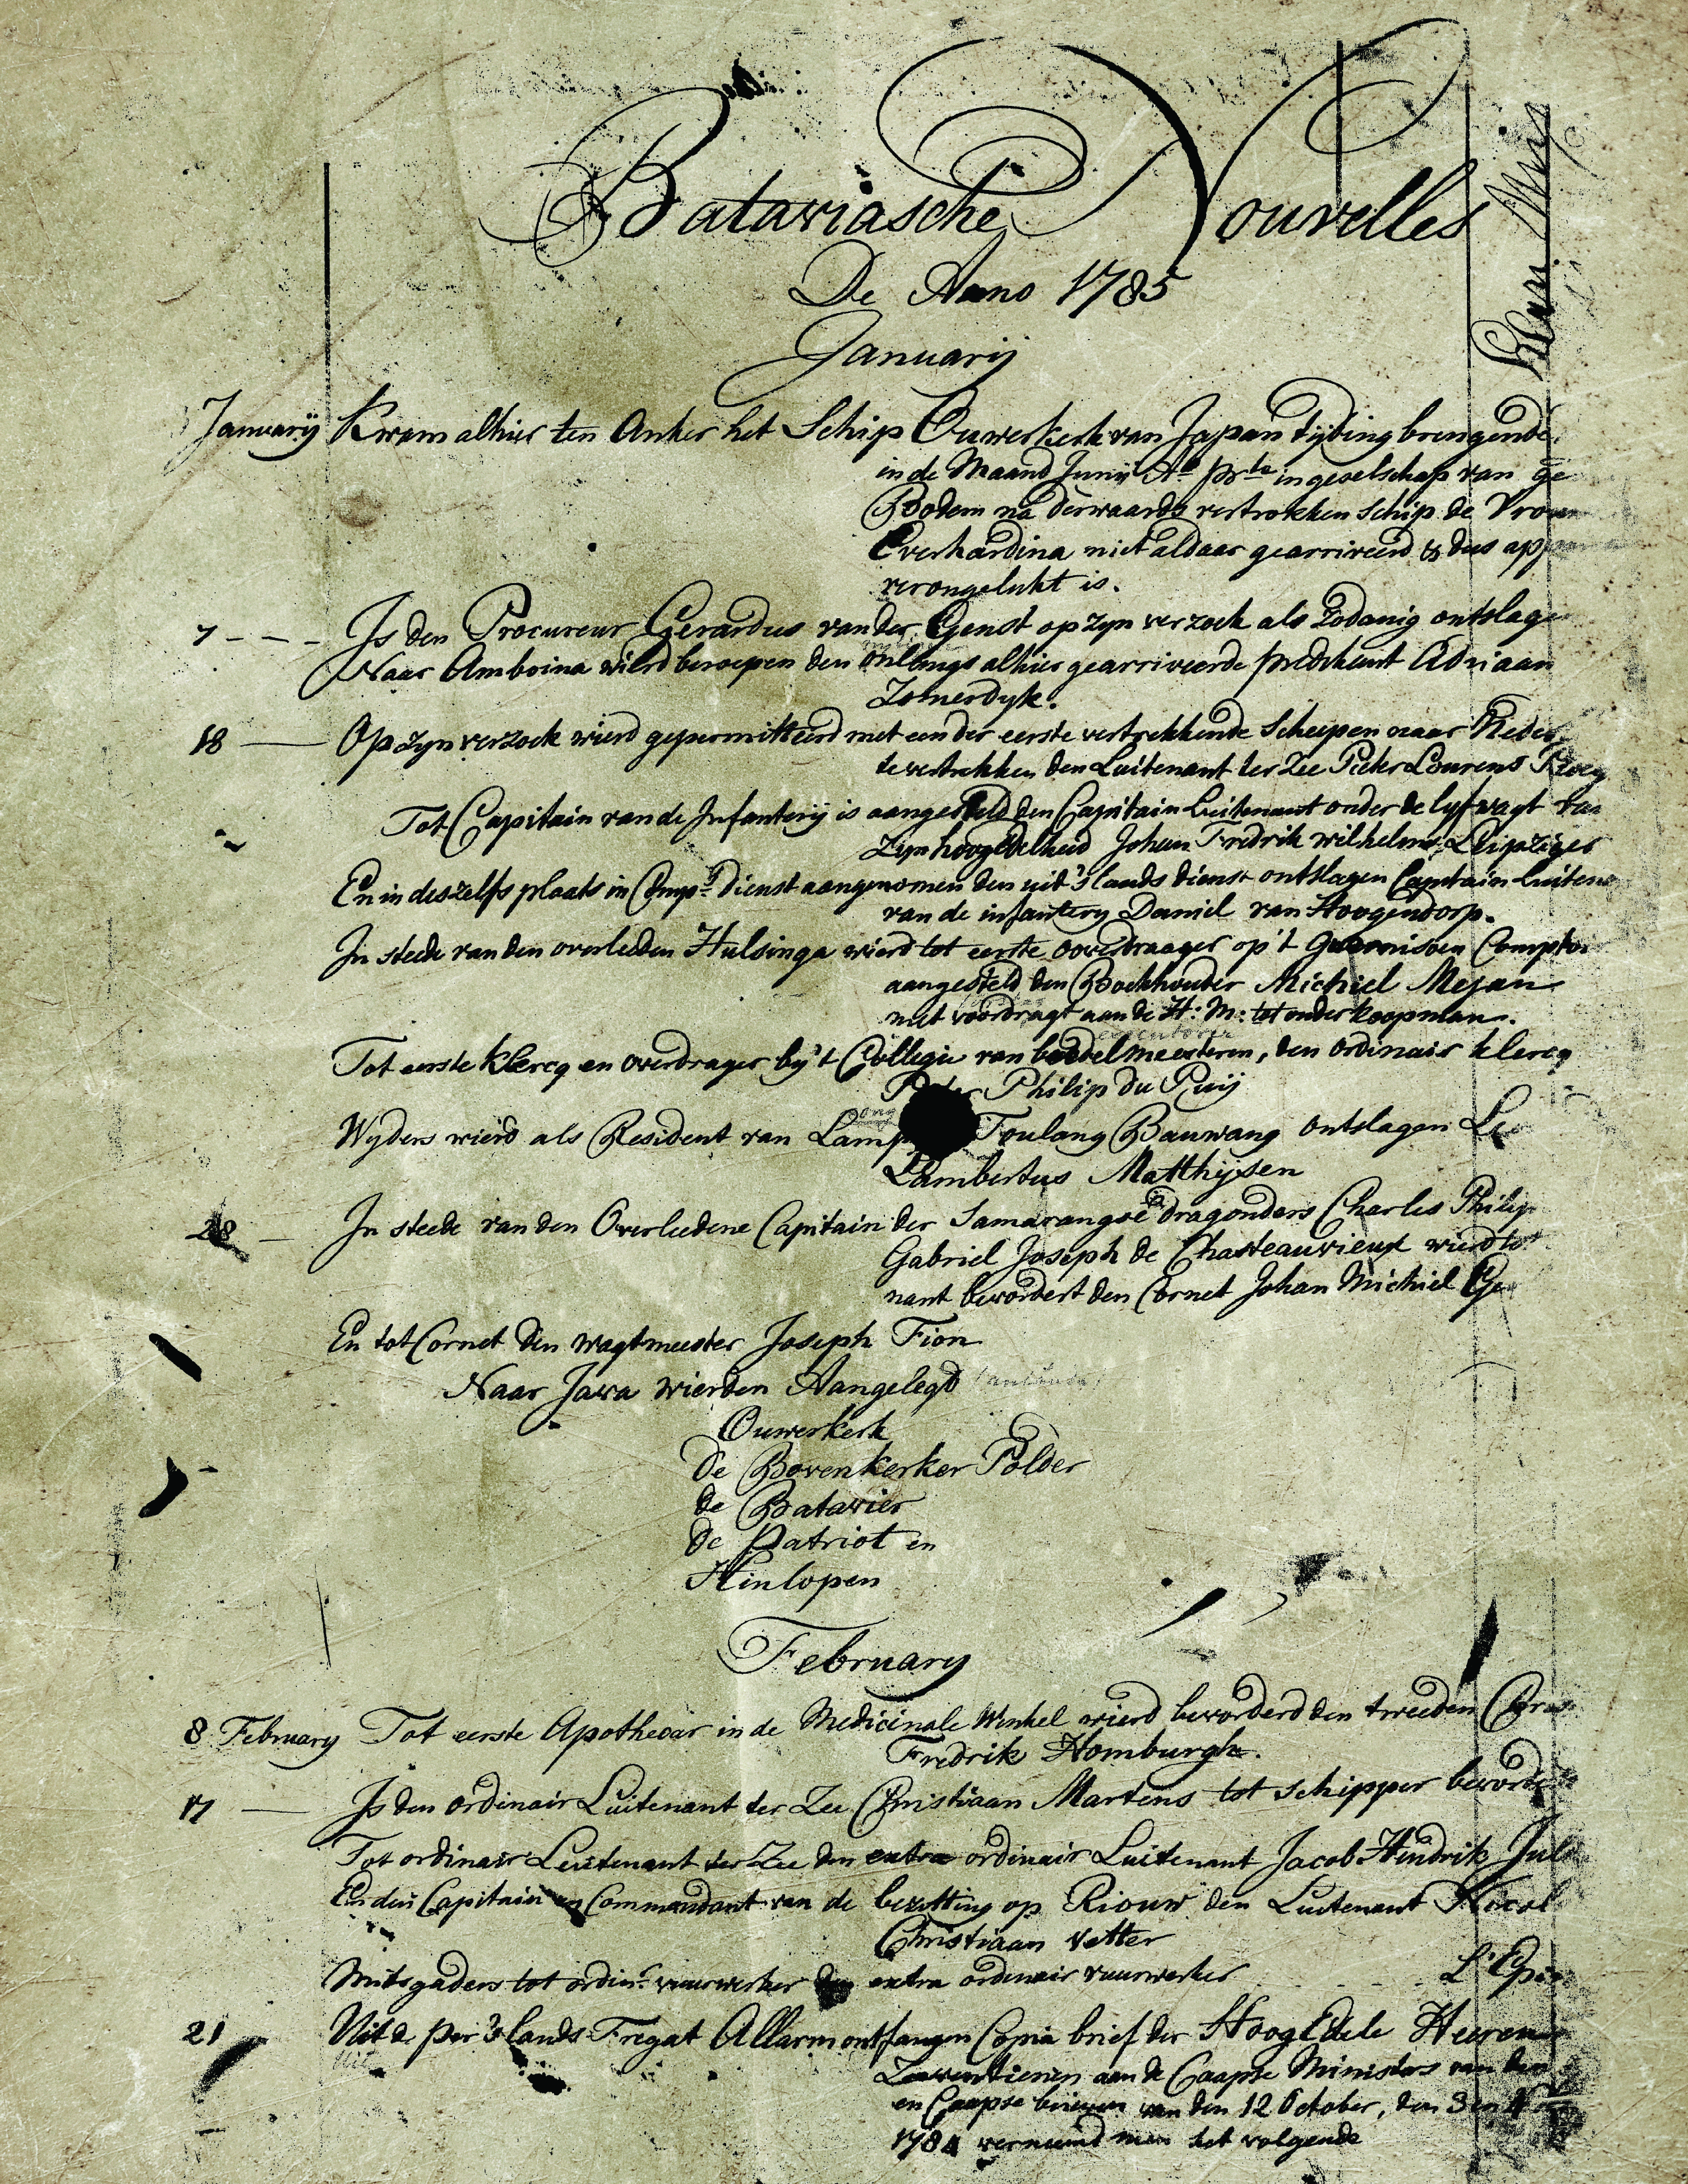 Bataviasche Nouvelles
De Anno 1785
Januarij
January Kwam alhier ten Anker het Schip Ouwerkerk van Japan tijding brengende
in de Maand Junij Ao. in geselschap van
Bodem na derwaards vertrokken schip de
Everhardina niet aldaar gearriveerd & dus
verongelukt is.
7 - - - Is den Procureur Gerardus van der Genst op zyn verzoek als zodanig
Naar Amboina wierd beroepen den onlangs alhier gearriveerde predikant Adriaan
Zomerdyk.
18 — Op zyn verzoek wierd gepermitteerd met een der eerste vertrekkende Scheepen naar
te vertrekken den Luitenant ter Zee Pieter Lourens
Tot Capitain van de Infanterij is aangesteld den Capitain Luitenant onder de lyfwagt van
Zyn hoogEdelheid Johan Fredrik wilhelm Leipziger
En in deszelfs plaats in Comps. dienst aangenomen den uit 's lands dienst ontslagen Capitain
van de infantery Daniel van Hoogendorp.
In steede van den overleeden Hulsinga wierd tot eerste overdraager op 't Guarnisoen
aangesteld den Boekhouder Michiel Mejan
met voordragt aan de H: M: tot onderkoopman.
Tot eerste klercq en overdrager by 't Collegie van boedelmeesteren, den ordinair klercq
Philip du Ruij
Wyders wierd als Resident van Toulang Bauwang ontslagen
Lambertus Matthijsen
28 — In steede van den Overleedene Capitain der Samarangse dragonders Charles Philip
Gabriel Joseph de Chasteauvieux wierd
nant bevordert den Cornet Johan Michiel
En tot Cornet den wagtmeester Joseph Fion
Naar Java wierden Aangelegd
Ouwerkerk
de Bovenkerker Polder
de Batavier
de Patriot en
Hinlopen
February
8 February Tot eerste Apothecar in de Medicinale Winkel wierd bevorderd den tweeden
Fredrik Homburgh.
17 — Is den ordinair Luitenant ter Zee Christiaan Martens tot schipper
Tot ordinair Leutenant ter Zee den extra ordinair Luitenant Jacob Hendrik
Capitain en Commandant van de bezetting op Riouw den Luitenant
Christiaan Vetter
Mitsgaders tot ordinr. vuurwerker den extra ordinair vuurwerker
21 Uit de per 's lands Fregat Allarm ontfangen Copia brief der HoogEdele Heeren
Zeeventienen aan de Caapse Ministers van den
en Caapse brieven van den 12 October, den 3 en
1784 verneemd men het volgende